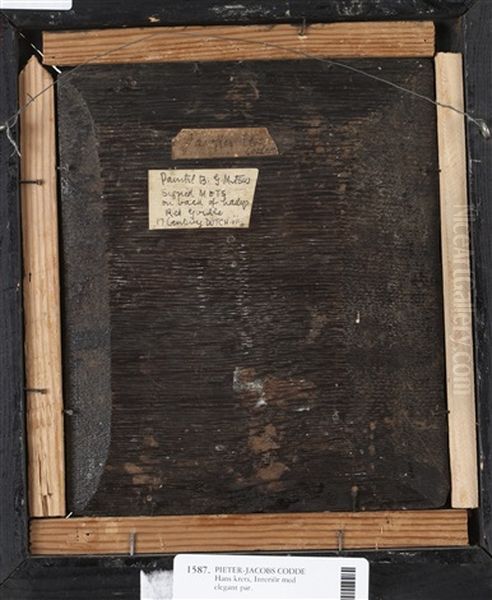 Painted By G Metsu
Signed METS
on back of Ladys
Red Girdle
17 Century DUTCH
1587. PIETER-JACOBS CODDE
Hans krets, Interiör med
elegant par.
NiceArtGallery.com